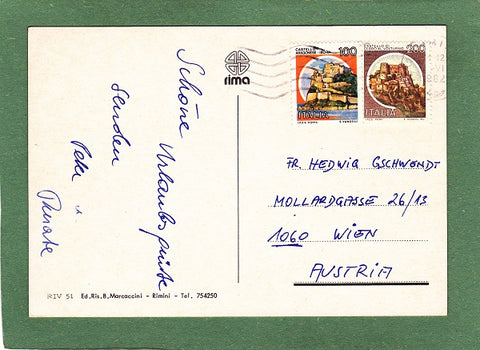 Schöne Urlaubsgrüße
senden
Peter u.
Renate
rima
100
200
ITALIA
ITALIA
FR. HEDWIG GSCHWENDT
MOLLARDGASSE 26/13
1060 WIEN
AUSTRIA
RIV 51 Ed.Ris.B.Marcaccini - Rimini - Tel. 754250